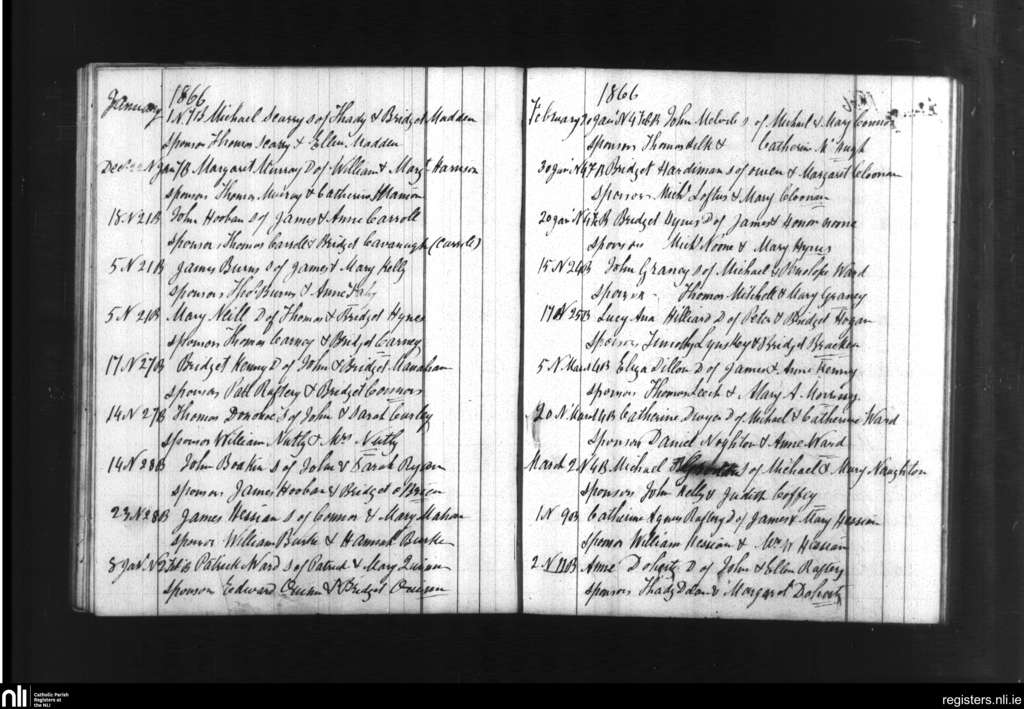 1866
January 1 N 7 B Michael Seary s of Thady & Bridget Madden
sponsors Thomas Seary & Ellen Madden
N Jan 7 B Margaret Murray D of William & Margt Harrison
sponsors Thomas Murray & Catherine Harrison
18 N 21 B John Hooban s of James & Anne Carroll
sponsors Thomas Carroll & Bridget Cavanaugh (Carrole)
5 N 21 B James Burns s of James & Mary Kelly
sponsors Thos Burns & Anne
5 N 21 B Mary Neill D of Thomas & Bridget Hynes
sponsors Thomas Carney & Bridget Carney
17 N 27 B Bridget Kenny D of John & Bridget Manahan
sponsors Patt Raftery & Bridget Connors
14 N 27 B Thomas s of John & Sarah Curley
sponsors William Nutly & Mrs Nutly
14 N 28 B John Boakin s of John & Sarah Ryan
sponsors James Hooban & Bridget O Brien
23 N 28 B James Hessian s of Connor & Mary Mahan
sponsor William Burke & Hannah Burke
8 Jan N 2 Feb B Patrick Ward s of Patrick & Mary Quinn
sponsors Edward Quinn & Bridget Quinn
1866
February Jan N 4 Feb B John s of Michael & Mary Connor
sponsors Thomas Silk & Catherin McHugh
30 Jan N 4 F B Bridget Hardiman s of Owen & Margaret Cloonan
sponsors Michl Loftus & Mary Cloonan
20 Jan N 4 F B Bridget Hynes D of James & Honor Noone
sponsors Michl Noone & Mary Hynes
15 N 24 B John Graney s of Michael & Penelope Ward
sponsors Thomas Mitchell & Mary Graney
17 N 25 B Lucy Ana Hilliard D of Peter & Bridget Hogan
sponsors Timothy Lynskey & Bridget Bracken
5 N Mar 4 B Eliza Dillon D of James & Anne Kenny
sponsors Thomas Leech & Mary A Morrissy
20 N Mar 4 B Catherine Dwyer D of Michael & Catherine Ward
sponsors Daniel Noghton & Anne Ward
March 2 N 4 B Michael s of Michael & Mary Naughton
sponsors John Kelly & Judith Coffey
1 N 9 B Catherine Agnes Raftery D of James & Mary Hession
sponsor William Hession & Mrs W Hession
2 N 11 B Anne Doherty D of John & Ellen Raftery
sponsors Thady Dolan & Margaret Doherty
nli Catholic Parish
Registers at
the NLI
registers.nli.ie